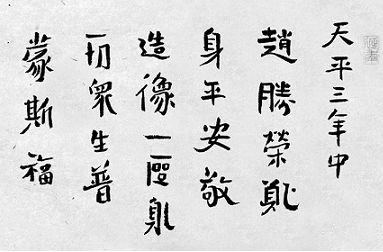 天平三年中
趙勝榮
身平安敬
造像一區
一切眾生普
蒙斯福